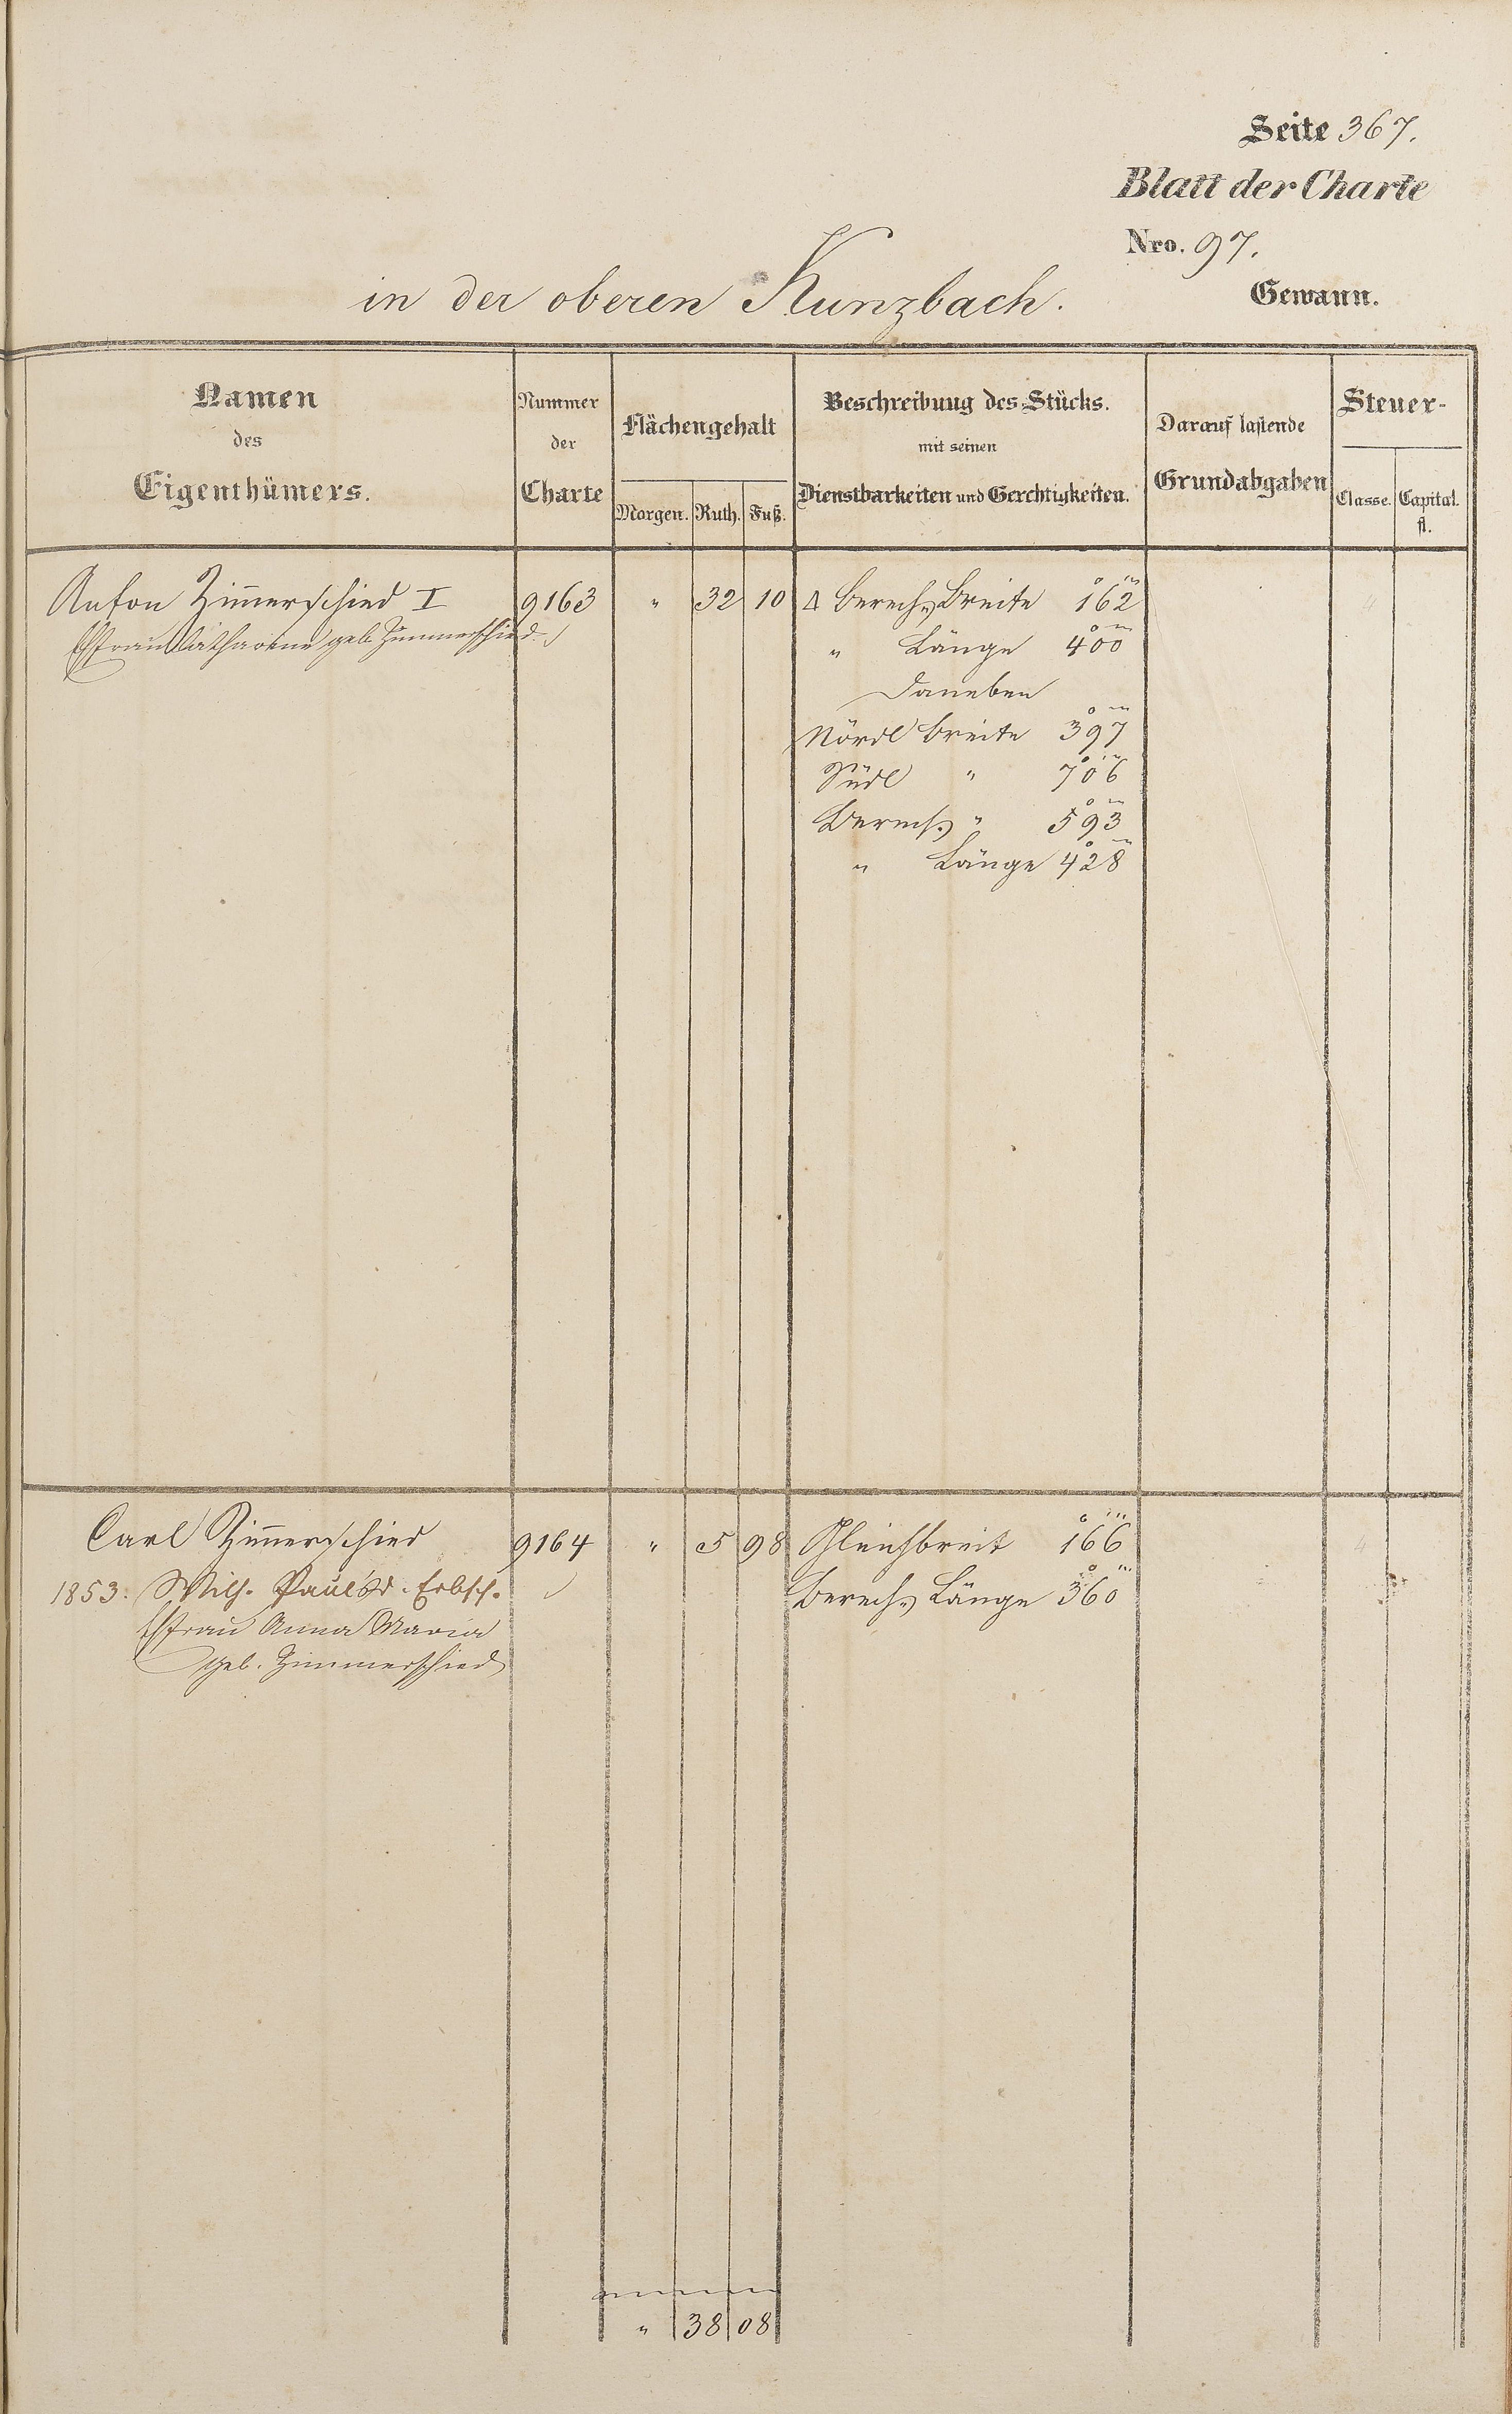 Seite 367.
Blatt der Charte
Nro. 97.
in der oberen Kunzbach. Gewann.
Namen des Eigenthümers.
Nummer der Charte
Flächengehalt
Morgen. Ruth. Fuß.
Beschreibung des Stücks.
mit seinen
Dienstbarkeiten und Gerechtigkeiten.
Darauf lastende
Grundabgaben
Steuer-
Classe. Capital.
fl.
Anton Zim̅erschied I 9163 " 32 10 Δ Berech. Breite 162
Ehfrau Catharine geb. Zimmerschied " Länge 400
Daneben
Nördl Breite 397
Südl " 706
Berech. " 593
" Länge 428
4
Carl Zim̅erschied 9164 " 5 98 Gleichbreit 166 4
1853: Wilh. Paul's Erbsch. Berech. Länge 360
Ehfrau Anna Maria
geb. Zimmerschied
" 38 08